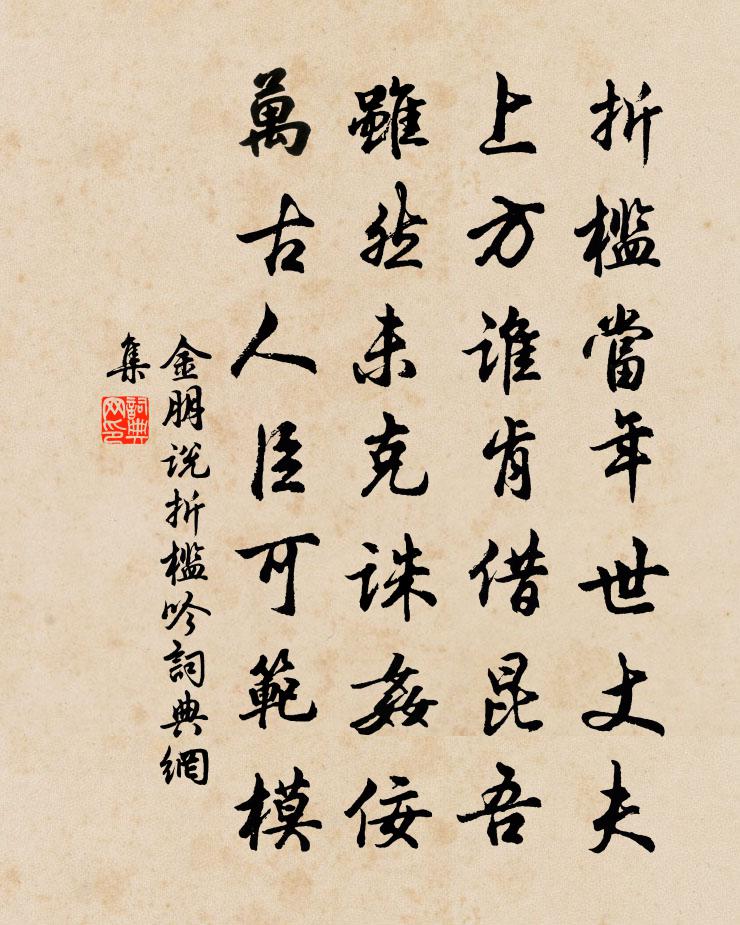 折檻當年世丈夫
上方誰肯借昆吾
雖然未克誅姦佞
萬古人臣可範模
金朋说折檻吟詞典網
集
詞典
网印